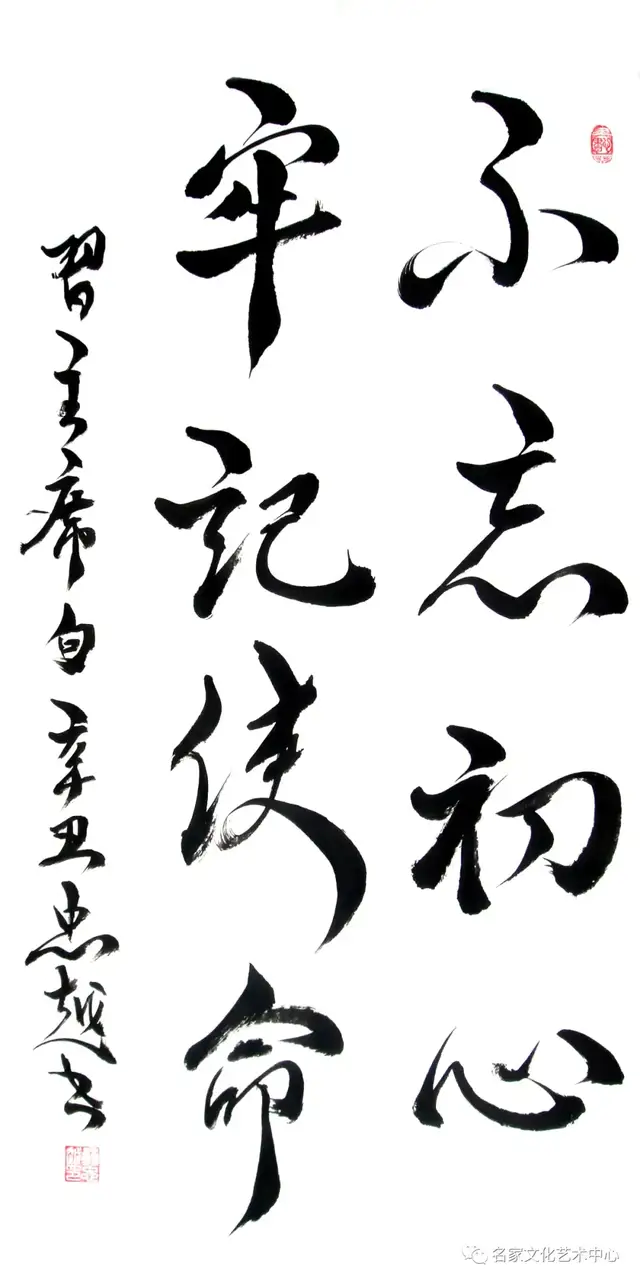 不忘初心
牢记使命
習主席句辛丑忠越书
名家文化艺术中心